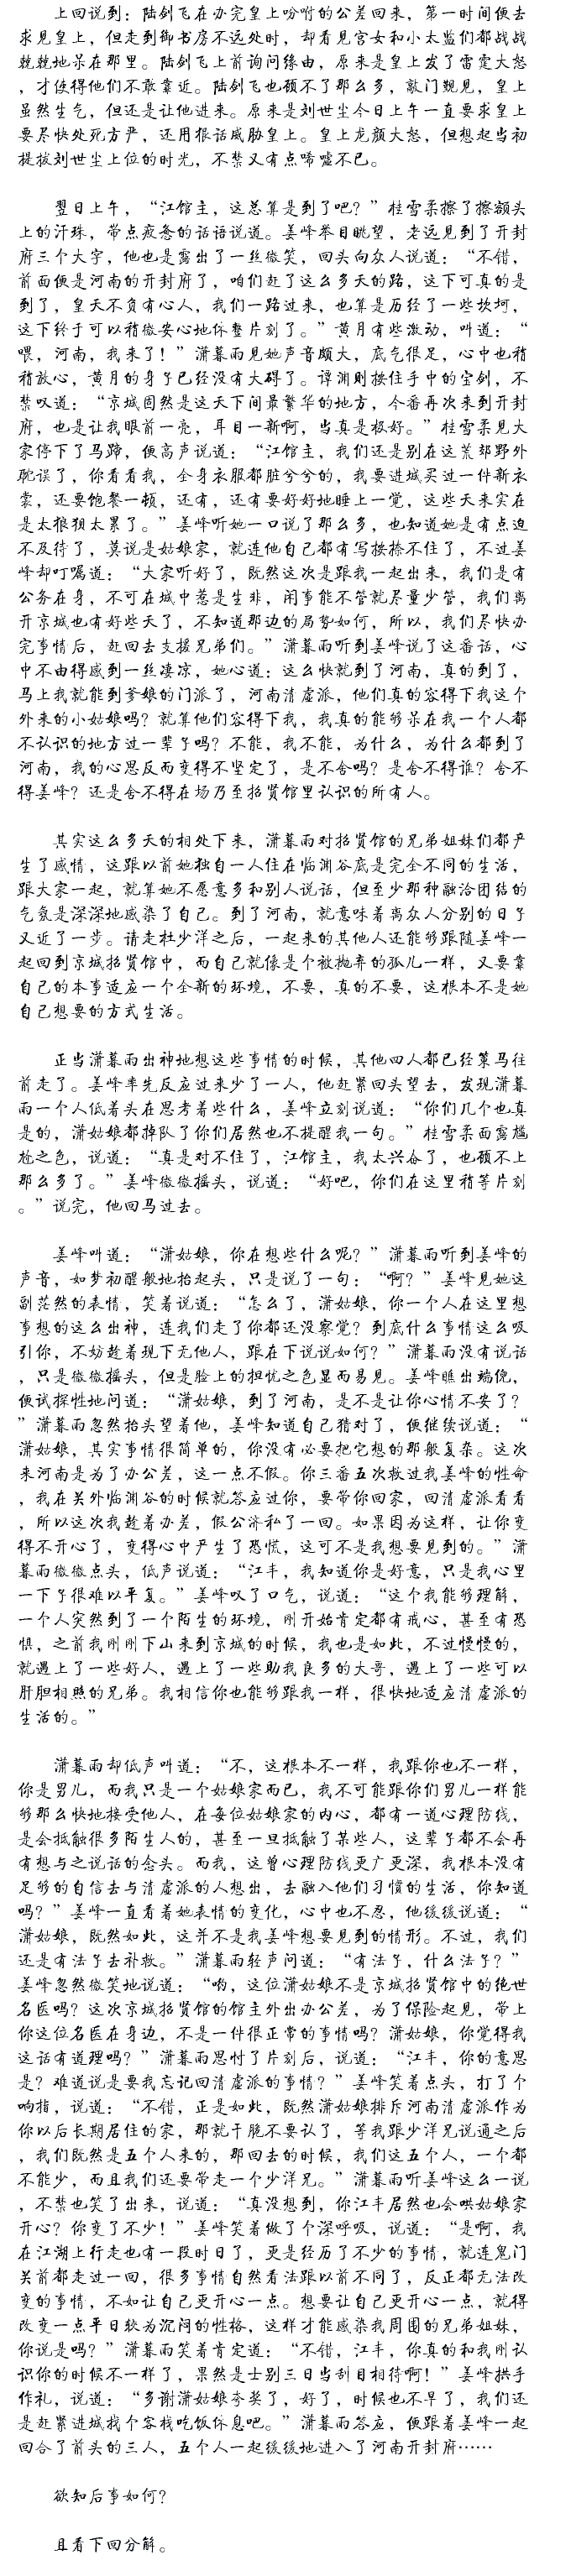 上回说到：陆剑飞在办完皇上吩咐的公差回来，第一时间便去
求见皇上，但走到御书房不远处时，却看见宫女和小太监们都战战
兢兢地呆在那里。陆剑飞上前询问缘由，原来是皇上发了雷霆大怒
，才使得他们不敢靠近。陆剑飞也顾不了那么多，敲门觐见，皇上
虽然生气，但还是让他进来。原来是刘世尘今日上午一直要求皇上
要尽快处死方严，还用狠话威胁皇上。皇上龙颜大怒，但想起当初
提拔刘世尘上位的时光，不禁又有点唏嘘不已。
翌日上午，“江馆主，这总算是到了吧？”桂雪柔擦了擦额头
上的汗珠，带点疲惫的话语说道。姜峰举目眺望，老远见到了开封
府三个大字，他也是露出了一丝微笑，回头向众人说道：“不错，
前面便是河南的开封府了，咱们赶了这么多天的路，这下可真的是
到了，皇天不负有心人，我们一路过来，也算是历经了一些坎坷，
这下终于可以稍微安心地休整片刻了。”黄月有些激动，叫道：“
喂，河南，我来了！”潇暮雨见她声音颇大，底气很足，心中也稍
稍放心，黄月的身子已经没有大碍了。谭渊则按住手中的宝剑，不
禁叹道：“京城固然是这天下间最繁华的地方，今番再次来到开封
府，也是让我眼前一亮，耳目一新啊，当真是极好。”桂雪柔见大
家停下了马蹄，便高声说道：“江馆主，我们还是别在这荒郊野外
耽误了，你看看我，全身衣服都脏兮兮的，我要进城买过一件新衣
裳，还要饱餐一顿，还有，还有要好好地睡上一觉，这些天来实在
是太狼狈太累了。”姜峰听她一口说了那么多，也知道她是有点迫
不及待了，莫说是姑娘家，就连他自己都有写按捺不住了，不过姜
峰却叮嘱道：“大家听好了，既然这次是跟我一起出来，我们是有
公务在身，不可在城中惹是生非，闲事能不管就尽量少管，我们离
开京城也有好些天了，不知道那边的局势如何，所以，我们尽快办
完事情后，赶回去支援兄弟们。”潇暮雨听到姜峰说了这番话，心
中不由得感到一丝凄凉，她心道：这么快就到了河南，真的到了，
马上我就能到爹娘的门派了，河南清虚派，他们真的容得下我这个
外来的小姑娘吗？就算他们容得下我，我真的能够呆在我一个人都
不认识的地方过一辈子吗？不能，我不能，为什么，为什么都到了
河南，我的心思反而变得不坚定了，是不舍吗？是舍不得谁？舍不
得姜峰？还是舍不得在场乃至招贤馆里认识的所有人。
其实这么多天的相处下来，潇暮雨对招贤馆的兄弟姐妹们都产
生了感情，这跟以前她独自一人住在临渊谷底是完全不同的生活，
跟大家一起，就算她不愿意多和别人说话，但至少那种融洽团结的
气氛是深深地感染了自己。到了河南，就意味着离众人分别的日子
又近了一步。请走杜少洋之后，一起来的其他人还能够跟随姜峰一
起回到京城招贤馆中，而自己就像是个被抛弃的孤儿一样，又要靠
自己的本事适应一个全新的环境，不要，真的不要，这根本不是她
自己想要的方式生活。
正当潇暮雨出神地想这些事情的时候，其他四人都已经策马往
前走了。姜峰率先反应过来少了一人，他赶紧回头望去，发现潇暮
雨一个人低着头在思考着些什么，姜峰立刻说道：“你们几个也真
是的，潇姑娘都掉队了你们居然也不提醒我一句。”桂雪柔面露尴
尬之色，说道：“真是对不住了，江馆主，我太兴奋了，也顾不上
那么多了。”姜峰微微摇头，说道：“好吧，你们在这里稍等片刻
。”说完，他回马过去。
姜峰叫道：“潇姑娘，你在想些什么呢？”潇暮雨听到姜峰的
声音，如梦初醒般地抬起头，只是说了一句：“啊？”姜峰见她这
副茫然的表情，笑着说道：“怎么了，潇姑娘，你一个人在这里想
事想的这么出神，连我们走了你都还没察觉？到底什么事情这么吸
引你，不妨趁着现下无他人，跟在下说说如何？”潇暮雨没有说话
，只是微微摇头，但是脸上的担忧之色显而易见。姜峰瞧出端倪，
便试探性地问道：“潇姑娘，到了河南，是不是让你心情不安了？
”潇暮雨忽然抬头望着他，姜峰知道自己猜对了，便继续说道：“
潇姑娘，其实事情很简单的，你没有必要把它想的那般复杂。这次
来河南是为了办公差，这一点不假。你三番五次救过我姜峰的性命
，我在关外临渊谷的时候就答应过你，要带你回家，回清虚派看看
，所以这次我趁着办差，假公济私了一回。如果因为这样，让你变
得不开心了，变得心中产生了恐慌，这可不是我想要见到的。”潇
暮雨微微点头，低声说道：“江丰，我知道你是好意，只是我心里
一下子很难以平复。”姜峰叹了口气，说道：“这个我能够理解，
一个人突然到了一个陌生的环境，刚开始肯定都有戒心，甚至有恐
惧，之前我刚刚下山来到京城的时候，我也是如此，不过慢慢的，
就遇上了一些好人，遇上了一些助我良多的大哥，遇上了一些可以
肝胆相照的兄弟。我相信你也能够跟我一样，很快地适应清虚派的
生活的。”
潇暮雨却低声叫道：“不，这根本不一样，我跟你也不一样，
你是男儿，而我只是一个姑娘家而已，我不可能跟你们男儿一样能
够那么快地接受他人，在每位姑娘家的内心，都有一道心理防线，
是会抵触很多陌生人的，甚至一旦抵触了某些人，这辈子都不会再
有想与之说话的念头。而我，这曾心理防线更广更深，我根本没有
足够的自信去与清虚派的人想出，去融入他们习惯的生活，你知道
吗？”姜峰一直看着她表情的变化，心中也不忍，他缓缓说道：“
潇姑娘，既然如此，这并不是我姜峰想要见到的情形。不过，我们
还是有法子去补救。”潇暮雨轻声问道：“有法子，什么法子？”
姜峰忽然微笑地说道：“哟，这位潇姑娘不是京城招贤馆中的绝世
名医吗？这次京城招贤馆的馆主外出办公差，为了保险起见，带上
你这位名医在身边，不是一件很正常的事情吗？潇姑娘，你觉得我
这话有道理吗？”潇暮雨思忖了片刻后，说道：“江丰，你的意思
是？难道说是要我忘记回清虚派的事情？”姜峰笑着点头，打了个
响指，说道：“不错，正是如此，既然潇姑娘排斥河南清虚派作为
你以后长期居住的家，那就干脆不要认了，等我跟少洋兄说通之后
，我们既然是五个人来的，那回去的时候，我们这五个人，一个都
不能少，而且我们还要带走一个少洋兄。”潇暮雨听姜峰这么一说
，不禁也笑了出来，说道：“真没想到，你江丰居然也会哄姑娘家
开心？你变了不少！”姜峰笑着做了个深呼吸，说道：“是啊，我
在江湖上行走也有一段时日了，更是经历了不少的事情，就连鬼门
关前都走过一回，很多事情自然看法跟以前不同了，反正都无法改
变的事情，不如让自己更开心一点。想要让自己更开心一点，就得
改变一点平日较为沉闷的性格，这样才能感染我周围的兄弟姐妹，
你说是吗？”潇暮雨笑着肯定道：“不错，江丰，你真的和我刚认
识你的时候不一样了，果然是士别三日当刮目相待啊！”姜峰拱手
作礼，说道：“多谢潇姑娘夸奖了，好了，时候也不早了，我们还
是赶紧进城找个客栈吃饭休息吧。”潇暮雨答应，便跟着姜峰一起
回合了前头的三人，五个人一起缓缓地进入了河南开封府……
欲知后事如何？
且看下回分解。